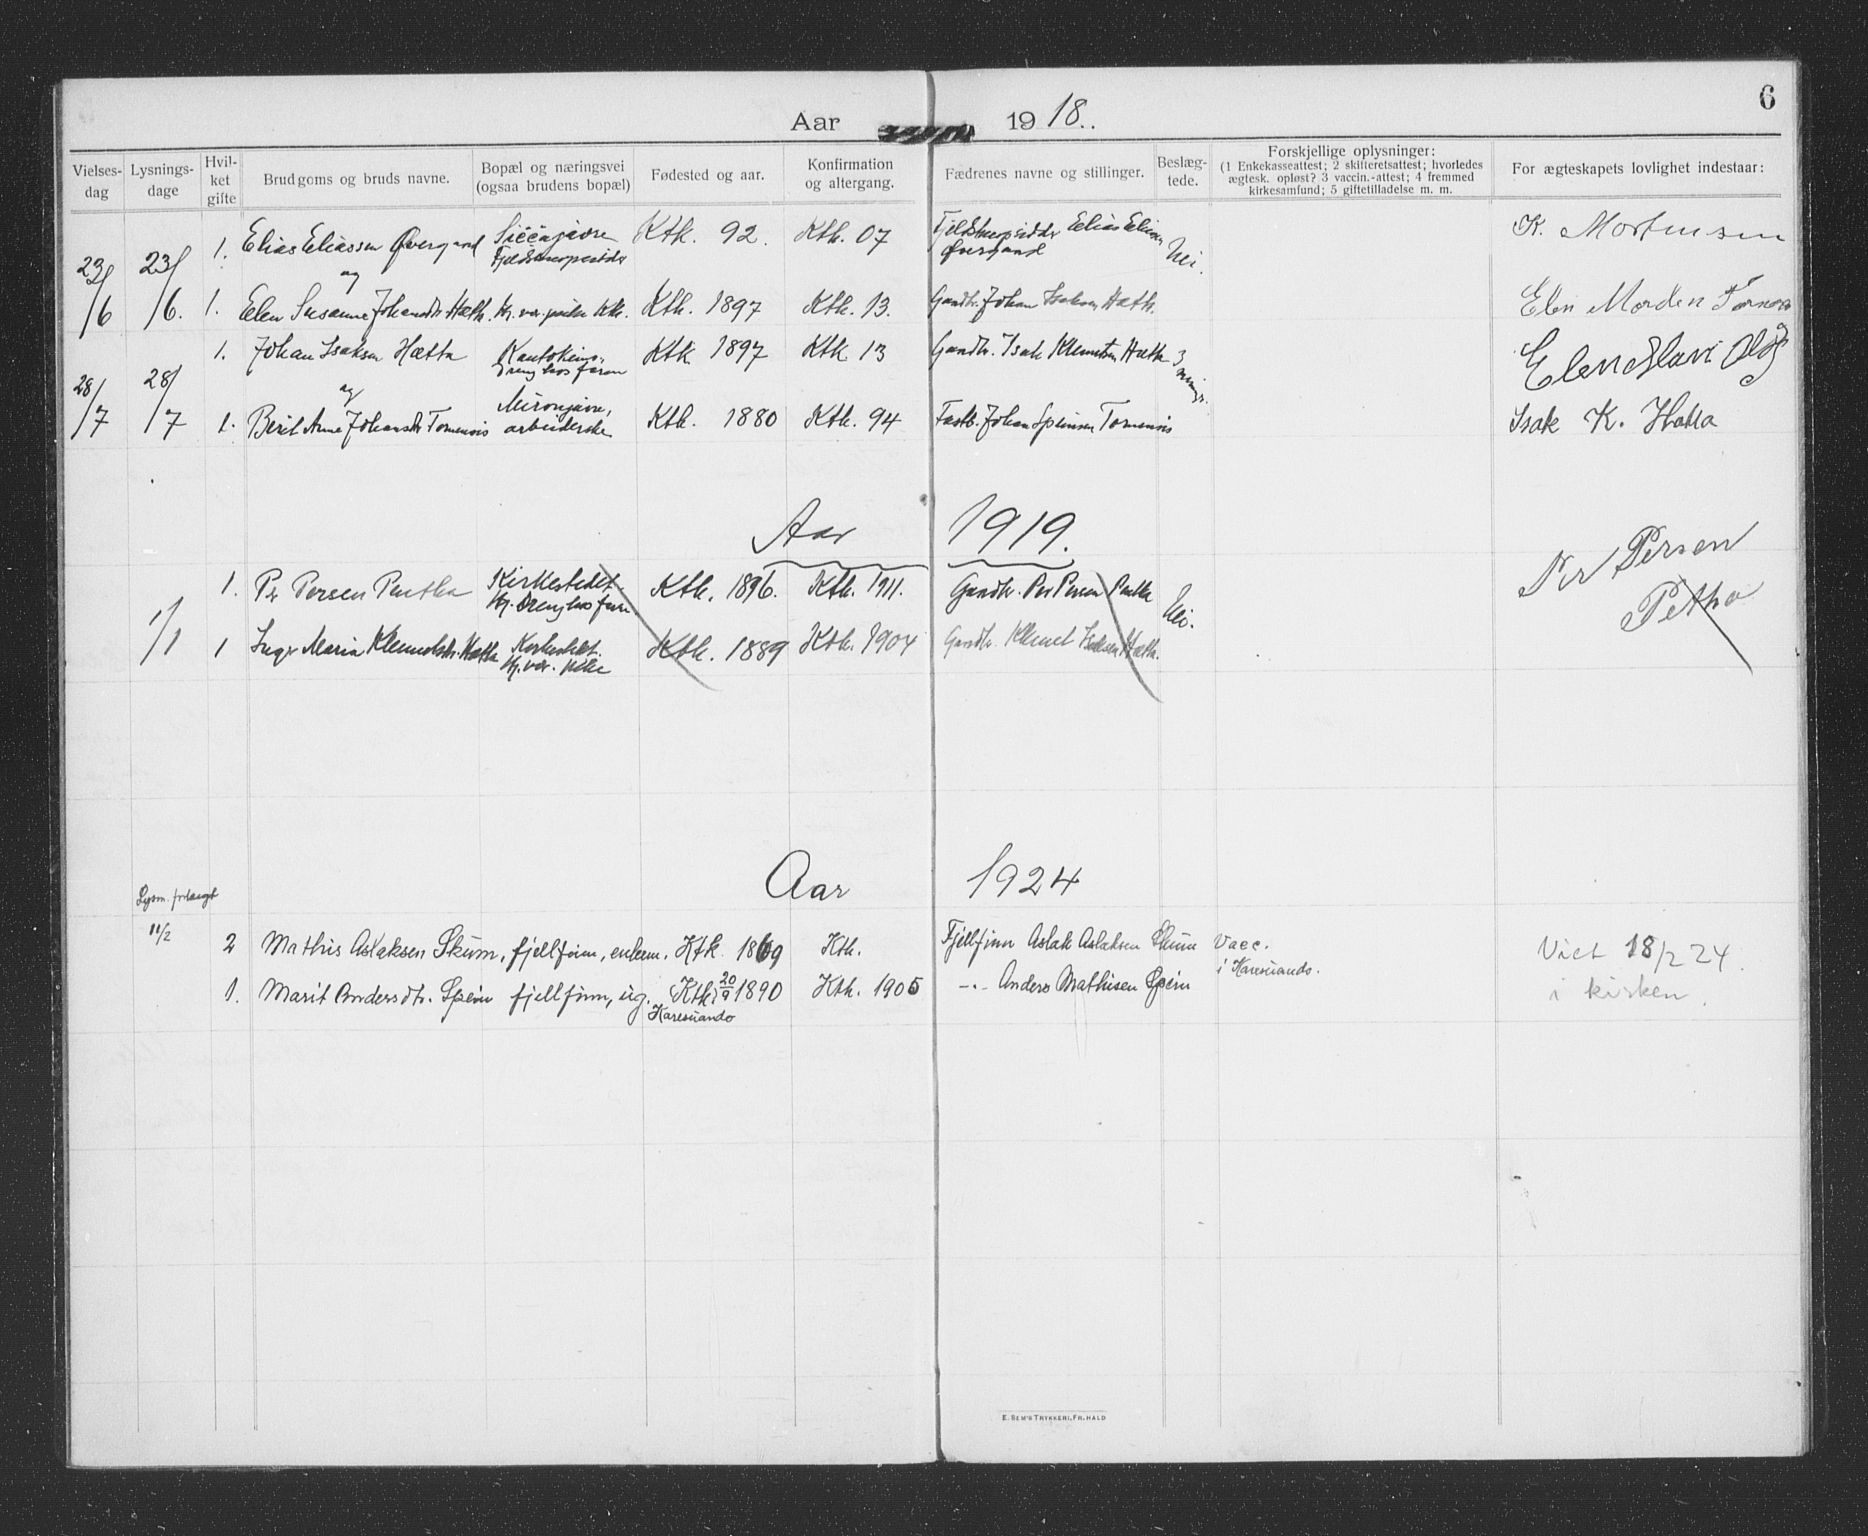 6
Aar 1918.
Vielsesdag | Lysningsdage | Hvilket gifte | Brudgoms og bruds navne. | Bopæl og næringsvei (ogsaa brudens bopæl) | Fødested og aar. | Konfirmation og altergang. | Fædrenes navne og stillinger. | Beslægtede. | Forskjellige oplysninger: (1 Enkekasseattest; 2 skifteretsattest; hvorledes ægtesk. opløst? 3 vaccin.-attest; 4 fremmed kirkesamfund; 5 giftetilladelse m. m. | For ægteskapets lovlighet indestaar:
23/6 | 23/6. | 1. | Elias Eliassen Øvergaard | Siččajavre | Ktk. 92. | Ktk. 07 | Elias Elias Øvergaard | Nei. | K. Mortensen
og
1. | Elen Susanne Johansdtr. Hætta. | Ktk. 1897 | Ktk. 13. | Gaardbr. Johan Isaksen Hætta. | Elen Morden
28/7 | 28/7 | 1. | Johan Isaksen Hætta | Kautokeino, Dreng hos faren | Ktk 1897 | Ktk 13 | Gaardbr. Isak Klemetsen Hætta | Elen
og
1. | Berit Anne Johansdtr Tornensis | Mironjavre, arbeiderske | Ktk. 1880 | Ktk. 94 | Fastb. Johan Tornensis | Isak K. Hætta
Aar 1919.
1/1 | 1. | Per Persen Pentha | Kirkestedet. Dreng hos faren. | Ktk. 1896. | Ktk. 1911. | Gaardbr. Per Persen Pentha | Nei. | Per Persen Petha
1 | Inger Maria Klemetsdtr. Hætta | Kirkestedet. pike | Ktk. 1889 | Ktk. 1904 | Gaardbr. Klemet Isaksen Hætta.
Aar 1924
Lysn. forlangt
11/2 | 2 | Mathis Aslaksen Skum, fjellfinn, enkem. | Ktk. 1869 | Ktk. | Fjellfinn Aslak Aslaksen Skum | Vacc. i Karesuando. | Viet 18/2 24. i kirken.
1. | Marit Andersdtr. Spein fjellfinn, ug. | Ktk. 20/9 1890 Karesuando | Ktk. 1905 | -"- Anders Mathisen Spein
E. SEM'S TRYKKERI, FR.HALD